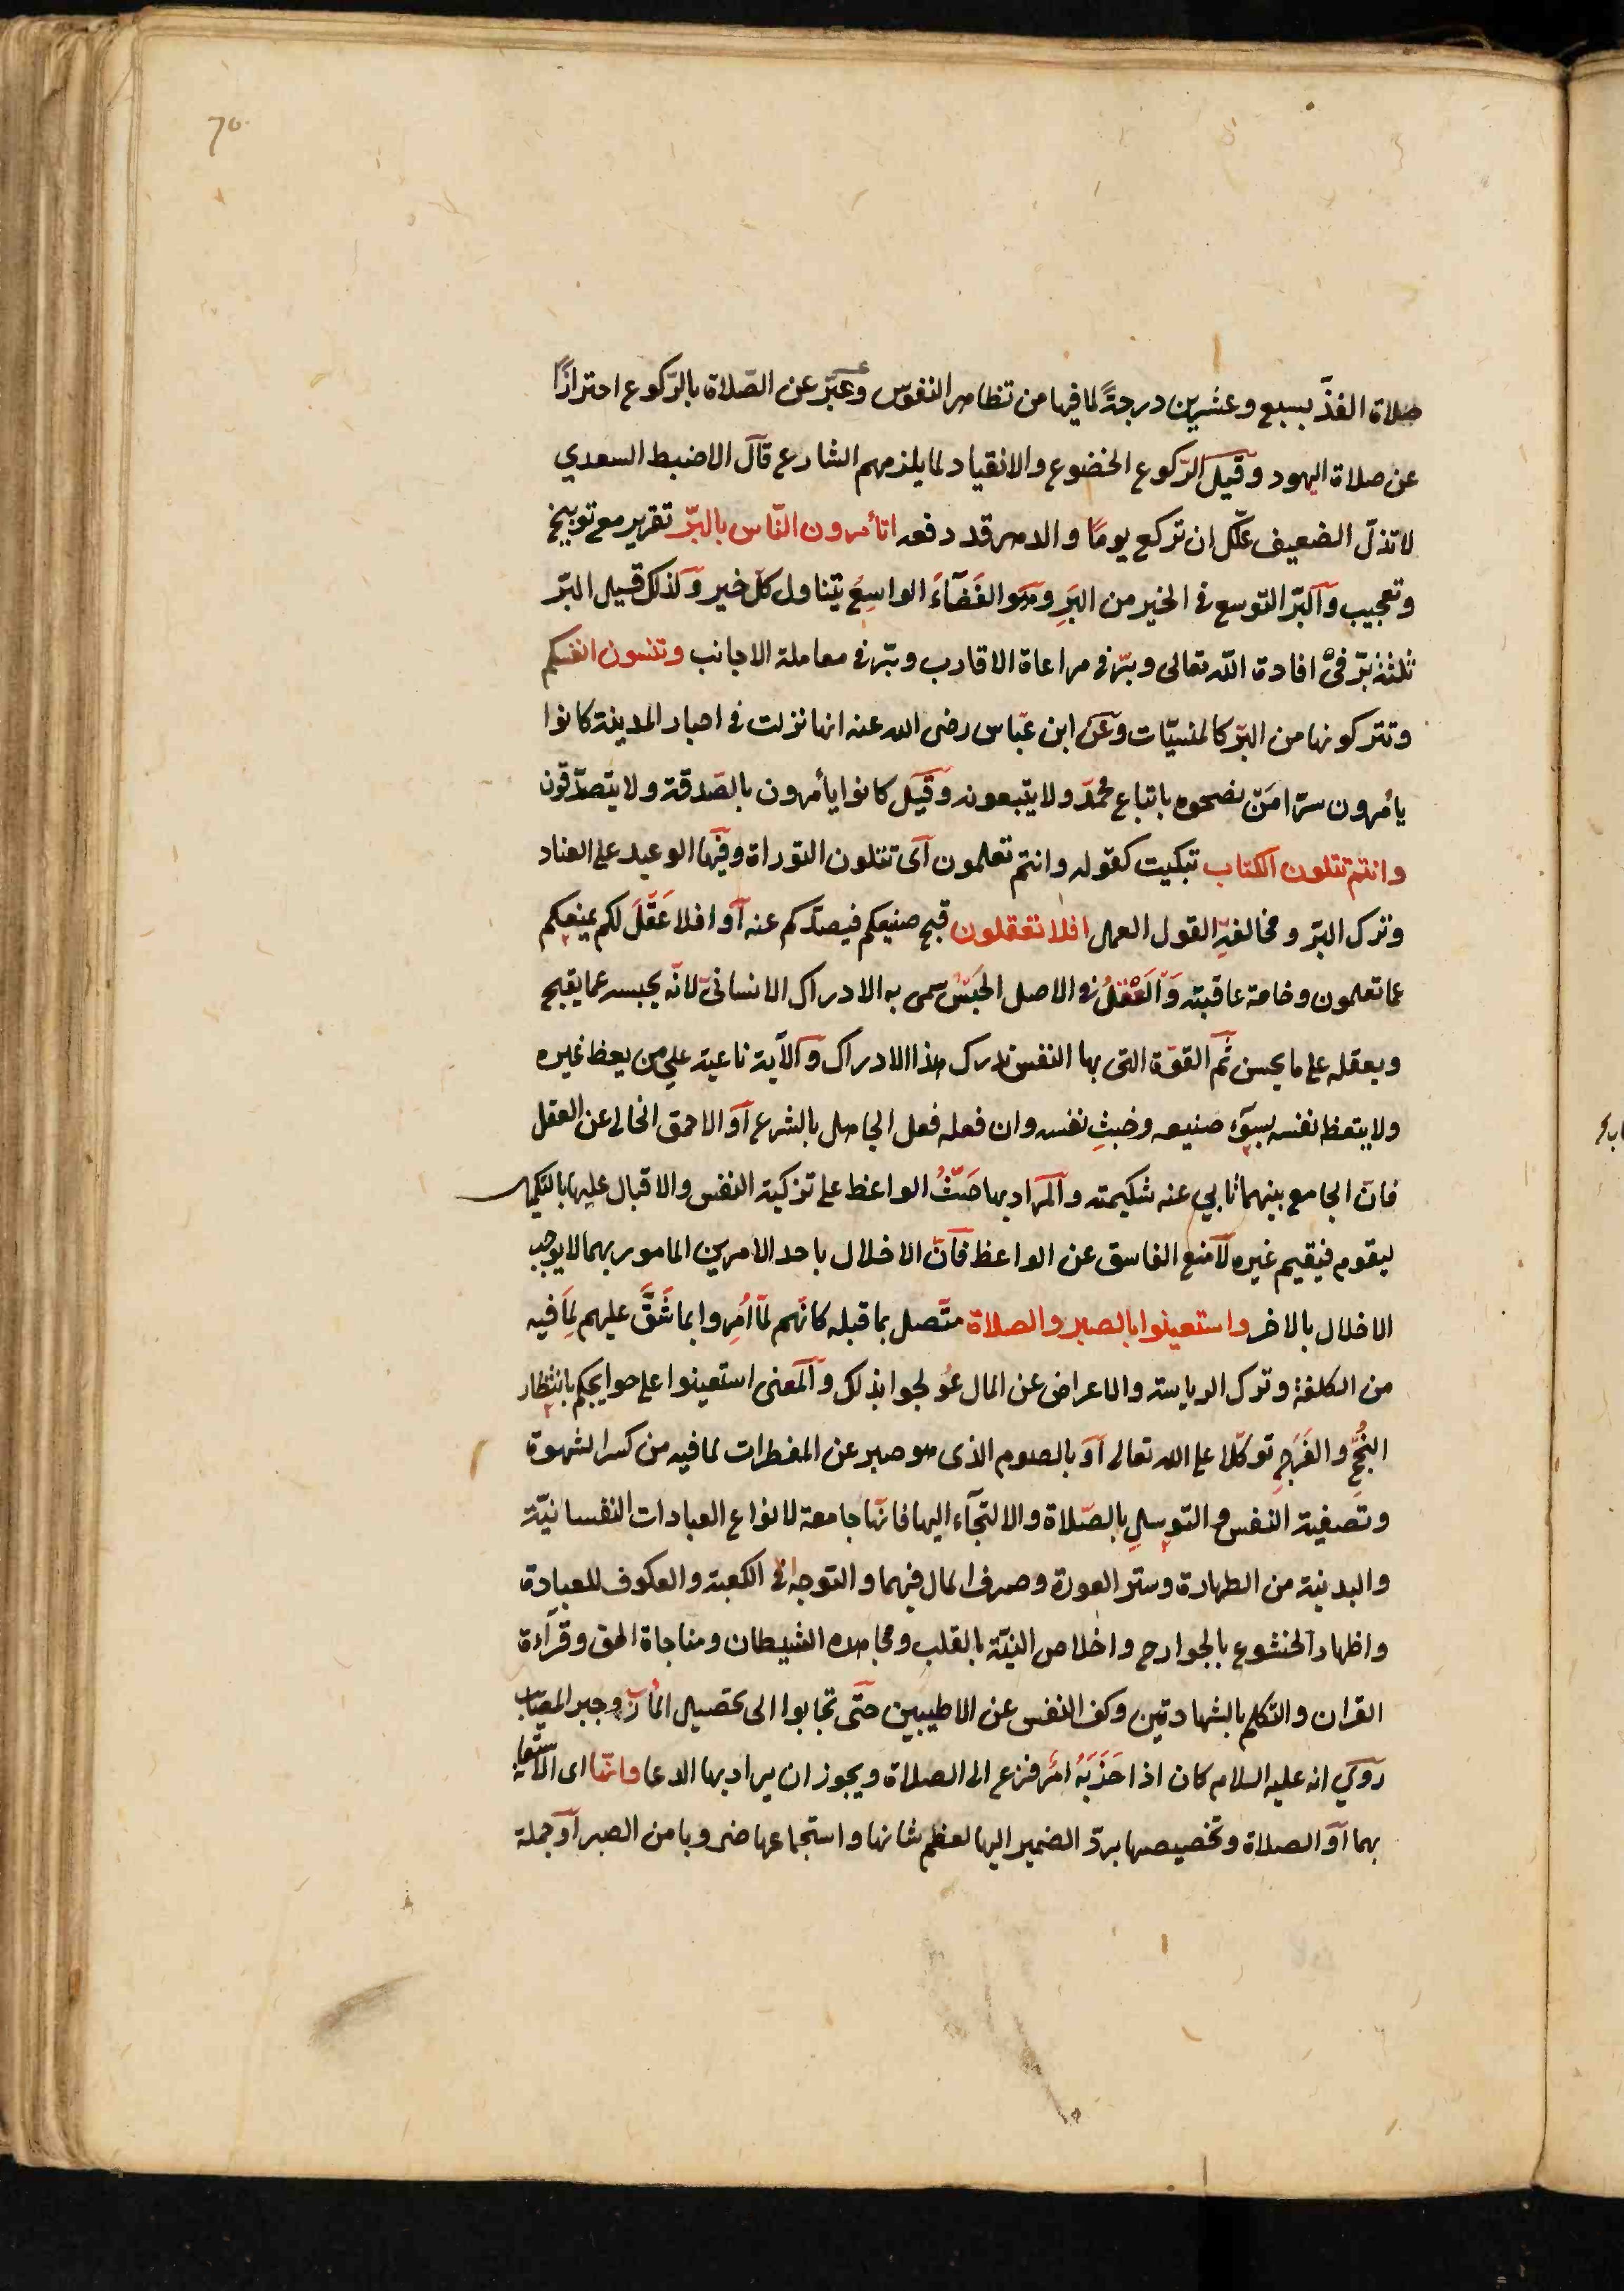 70
صلاة الفذّ بسبع وعشرين درجةً لما فيها من تظاهر النفوس وعبّر عن الصّلاة بالرّكوع احترازًا
عن صلاة اليهود وقيل الرّكوع الخضوع والانقياد لما يلزمهم الشارع قال الاضبط السعدي
لا تذلّ الضعيف علّك ان تركع يومًا والدهر قد رفعه اتأمرون النّاس بالبرّ تقرير مع توبيخ
وتعجيب والبرّ التوسع فى الخير من البَرِ وهو الفَضَآءُ الواسِعُ يتناول كلّ خير ولذلك قيل البرّ
ثلثة برّ فى افادة الله تعالى وبرّ فى مراعاة الاقارب وبرّ فى معاملة الاجانب وتنسون انفسكم
وتتركونها من البرّ كالمنسيّات وعن ابن عبّاس رضى الله عنه انها نزلت فى احبار المدينة كانوا
يأمرون سرّا مَنْ نصحوه باتباع محمّد ولا يتبعونه وقيل كانوا يأمرون بالصّدقة ولا يتصدّقون
وانتم تتلون الكتاب تبكيت كقوله وانتم تعلمون اى تتلون التوراة وفيها الوعيد على العناد
وترك البرّ ومخالفةِ القول العمل افلا تعقلون قبح صنيعكم فيصدّكم عنه او افلا عَقْلَ لكم يمنعكم
عما تعلمون وخامة عاقبته والعَقْلُ فى الاصل الحَبْسُ سمى به الادراك الانسانىّ لانّه يحبسه عما يقبح
ويعقله على ما يحسن ثمّ القوّة التى بها النفس تدرك هذا الادراك والآية ناعية على من يعظ غيره
ولا يتعظ نفسه بسوٓء صنيعه وخبثِ نفسه وان فعله فعل الجاهل بالشرع او الاحمق الخالى عن العقل
فان الجامع بينهما تابي عنه شكيمته والمراد بها حَثُّ الواعظ على تزكية النفس والاقبال عليها بالتكميل
ليقوم فيقيم غيره لا منع الفاسق عن الواعظ فانّ الاخلال باحد الامرين المامور بهما لا يوجب
الاخلال بالاخر واستعينوا بالصبر والصلاة متّصل بما قبله كانّهم لمّا اُمِروا بما شَقَّ عليهم لِمَا فيه
من الكلفة وترك الرياسة والاعراض عن المال عُولجوا بذلك والمعنى استعينوا على حوايجكم بانتظار
النُّجْحِ والفَرَجِ توكّلا على الله تعالى او بالصوم الذى هو صبر عن المفطرات لما فيه من كسر الشهوة
وتصفية النفس والتوسلِ بالصّلاة والالتجآء اليها فانّها جامعة لانواع العبادات النفسانيّة
والبدنية من الطهارة وستر العورة وصرف المال فيهما والتوجه الى الكعبة والعكوف للعبادة
واظهار الخشوع بالجوارح واخلاص النيّة بالقلب ومجاهدة الشيطان ومناجاة الحق وقرآءة
القران والتكلم بالشهادتين وكف النفس عن الاطيبين حتّى تجابوا الى تحصيل المأرب وجبر المصاب
روى انه عليه السلام كان اذا حَزَبَهُ امْرٌ فزع الى الصلاة ويجوز ان يراد بها الدعا وانّها اى الاستعانة
بهما او الصلاة وتخصيصها بردّ الضمير اليها لعظم شانها واستجماعها ضروبا من الصبر او جملة